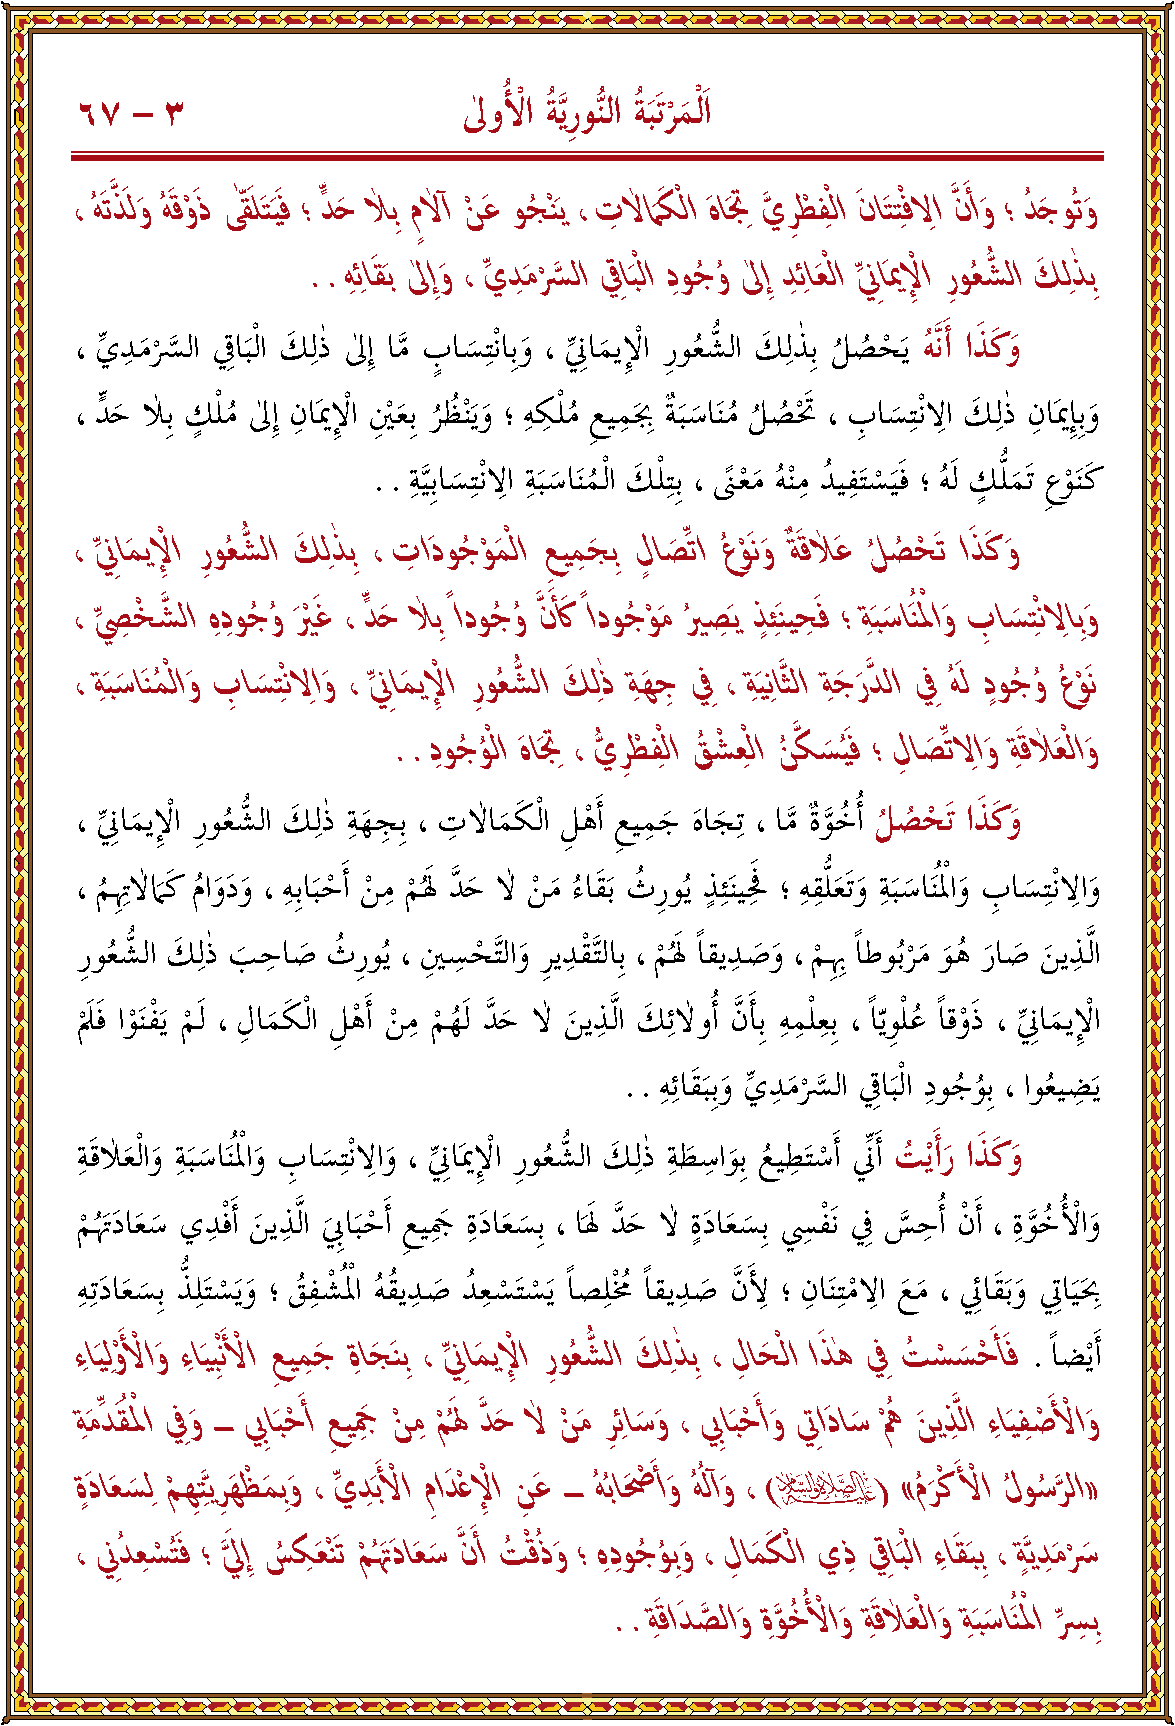 اَلْمَرْتَبَةُ النُّورِيَّةُ الْأُولىٰ
٣ – ٦٧
وَتُوجَدُ ؛ وَأَنَّ الِافْتِتَانَ الْفِطْرِيَّ تِجَاهَ الْكَمَالَاتِ ، يَنْجُو عَنْ آلَامٍ بِلَا حَدٍّ ؛ فَيَتَلَقَّى ذَوْقَهُ وَلَذَّتَهُ ،
بِذٰلِكَ الشُّعُورِ الْإِيمَانِيِّ الْعَائِدِ إِلىٰ وُجُودِ الْبَاقِي السَّرْمَدِيِّ ، وَإِلىٰ بَقَائِهِ . .
وَكَذَا أَنَّهُ يَحْصُلُ بِذٰلِكَ الشُّعُورِ الْإِيمَانِيِّ ، وَبِانْتِسَابٍ مَّا إِلىٰ ذٰلِكَ الْبَاقِي السَّرْمَدِيِّ ،
وَبِإِيمَانِ ذٰلِكَ الِانْتِسَابِ ، تَحْصُلُ مُنَاسَبَةٌ بِجَمِيعِ مُلْكِهِ ؛ وَيَنْظُرُ بِعَيْنِ الْإِيمَانِ إِلىٰ مُلْكٍ بِلَا حَدٍّ ،
كَنَوْعِ تَمَلُّكٍ لَهُ ؛ فَيَسْتَفِيدُ مِنْهُ مَعْنًى ، بِتِلْكَ الْمُنَاسَبَةِ الِانْتِسَابِيَّةِ . .
وَكَذَا تَحْصُلُ عَلَاقَةٌ وَنَوْعُ اتِّصَالٍ بِجَمِيعِ الْمَوْجُودَاتِ ، بِذٰلِكَ الشُّعُورِ الْإِيمَانِيِّ ،
وَبِالِانْتِسَابِ وَالْمُنَاسَبَةِ ؛ فَحِينَئِذٍ يَصِيرُ مَوْجُوداً كَأَنَّ وُجُوداً بِلَا حَدٍّ ، غَيْرَ وُجُودِهِ الشَّخْصِيِّ ،
نَوْعُ وُجُودٍ لَهُ فِي الدَّرَجَةِ الثَّانِيَةِ ، فِي جِهَةِ ذٰلِكَ الشُّعُورِ الْإِيمَانِيِّ ، وَالِانْتِسَابِ وَالْمُنَاسَبَةِ ،
وَالْعَلَاقَةِ وَالِاتِّصَالِ ؛ فَيُسَكَّنُ الْعِشْقُ الْفِطْرِيُّ ، تِجَاهَ الْوُجُودِ . .
وَكَذَا تَحْصُلُ أُخُوَّةٌ مَّا ، تِجَاهَ جَمِيعِ أَهْلِ الْكَمَالَاتِ ، بِجِهَةِ ذٰلِكَ الشُّعُورِ الْإِيمَانِيِّ ،
وَالِانْتِسَابِ وَالْمُنَاسَبَةِ وَتَعَلُّقِهِ ؛ فَحِينَئِذٍ يُورِثُ بَقَاءُ مَنْ لَا حَدَّ لَهُمْ مِنْ أَحْبَابِهِ ، وَدَوَامُ كَمَالَاتِهِمُ ،
الَّذِينَ صَارَ هُوَ مَرْبُوطاً بِهِمْ ، وَصَدِيقاً لَهُمْ ، بِالتَّقْدِيرِ وَالتَّحْسِينِ ، يُورِثُ صَاحِبَ ذٰلِكَ الشُّعُورِ
الْإِيمَانِيِّ ، ذَوْقاً عُلْوِيّاً ، بِعِلْمِهِ بِأَنَّ أُولَائِكَ الَّذِينَ لَا حَدَّ لَهُمْ مِنْ أَهْلِ الْكَمَالِ ، لَمْ يَفْنَوْا فَلَمْ
يَضِيعُوا ، بِوُجُودِ الْبَاقِي السَّرْمَدِيِّ وَبِبَقَائِهِ . .
وَكَذَا رَأَيْتُ أَنِّي أَسْتَطِيعُ بِوَاسِطَةِ ذٰلِكَ الشُّعُورِ الْإِيمَانِيِّ ، وَالِانْتِسَابِ وَالْمُنَاسَبَةِ وَالْعَلَاقَةِ
وَالْأُخُوَّةِ ، أَنْ أُحِسَّ فِي نَفْسِي بِسَعَادَةٍ لَا حَدَّ لَهَا ، بِسَعَادَةِ جَمِيعِ أَحْبَابِيَ الَّذِينَ أَفْدِي سَعَادَتَهُمْ
بِحَيَاتِي وَبَقَائِي ، مَعَ الِامْتِنَانِ ؛ لِأَنَّ صَدِيقاً مُخْلِصاً يَسْتَسْعِدُ صَدِيقَهُ الْمُشْفِقُ ؛ وَيَسْتَلِذُّ بِسَعَادَتِهِ
أَيْضاً . فَأَحْسَسْتُ فِي هٰذَا الْحَالِ ، بِذٰلِكَ الشُّعُورِ الْإِيمَانِيِّ ، بِنَجَاةِ جَمِيعِ الْأَنْبِيَاءِ وَالْأَوْلِيَاءِ
وَالْأَصْفِيَاءِ الَّذِينَ هُمْ سَادَاتِي وَأَحْبَابِي ، وَسَائِرِ مَنْ لَا حَدَّ لَهُمْ مِنْ جَمِيعِ أَحْبَابِي – وَفِي الْمُقَدِّمَةِ
«الرَّسُولُ الْأَكْرَمُ» (عَلَيْهِ الصَّلَاةُ وَالسَّلَامُ) ، وَآلُهُ وَأَصْحَابُهُ – عَنِ الْإِعْدَامِ الْأَبَدِيِّ ، وَبِمَظْهَرِيَّتِهِمْ لِسَعَادَةٍ
سَرْمَدِيَّةٍ ، بِبَقَاءِ الْبَاقِي ذِي الْكَمَالِ ، وَبِوُجُودِهِ ؛ وَذُقْتُ أَنَّ سَعَادَتَهُمْ تَنْعَكِسُ إِلَيَّ ؛ فَتُسْعِدُنِي ،
بِسِرِّ الْمُنَاسَبَةِ وَالْعَلَاقَةِ وَالْأُخُوَّةِ وَالصَّدَاقَةِ . .